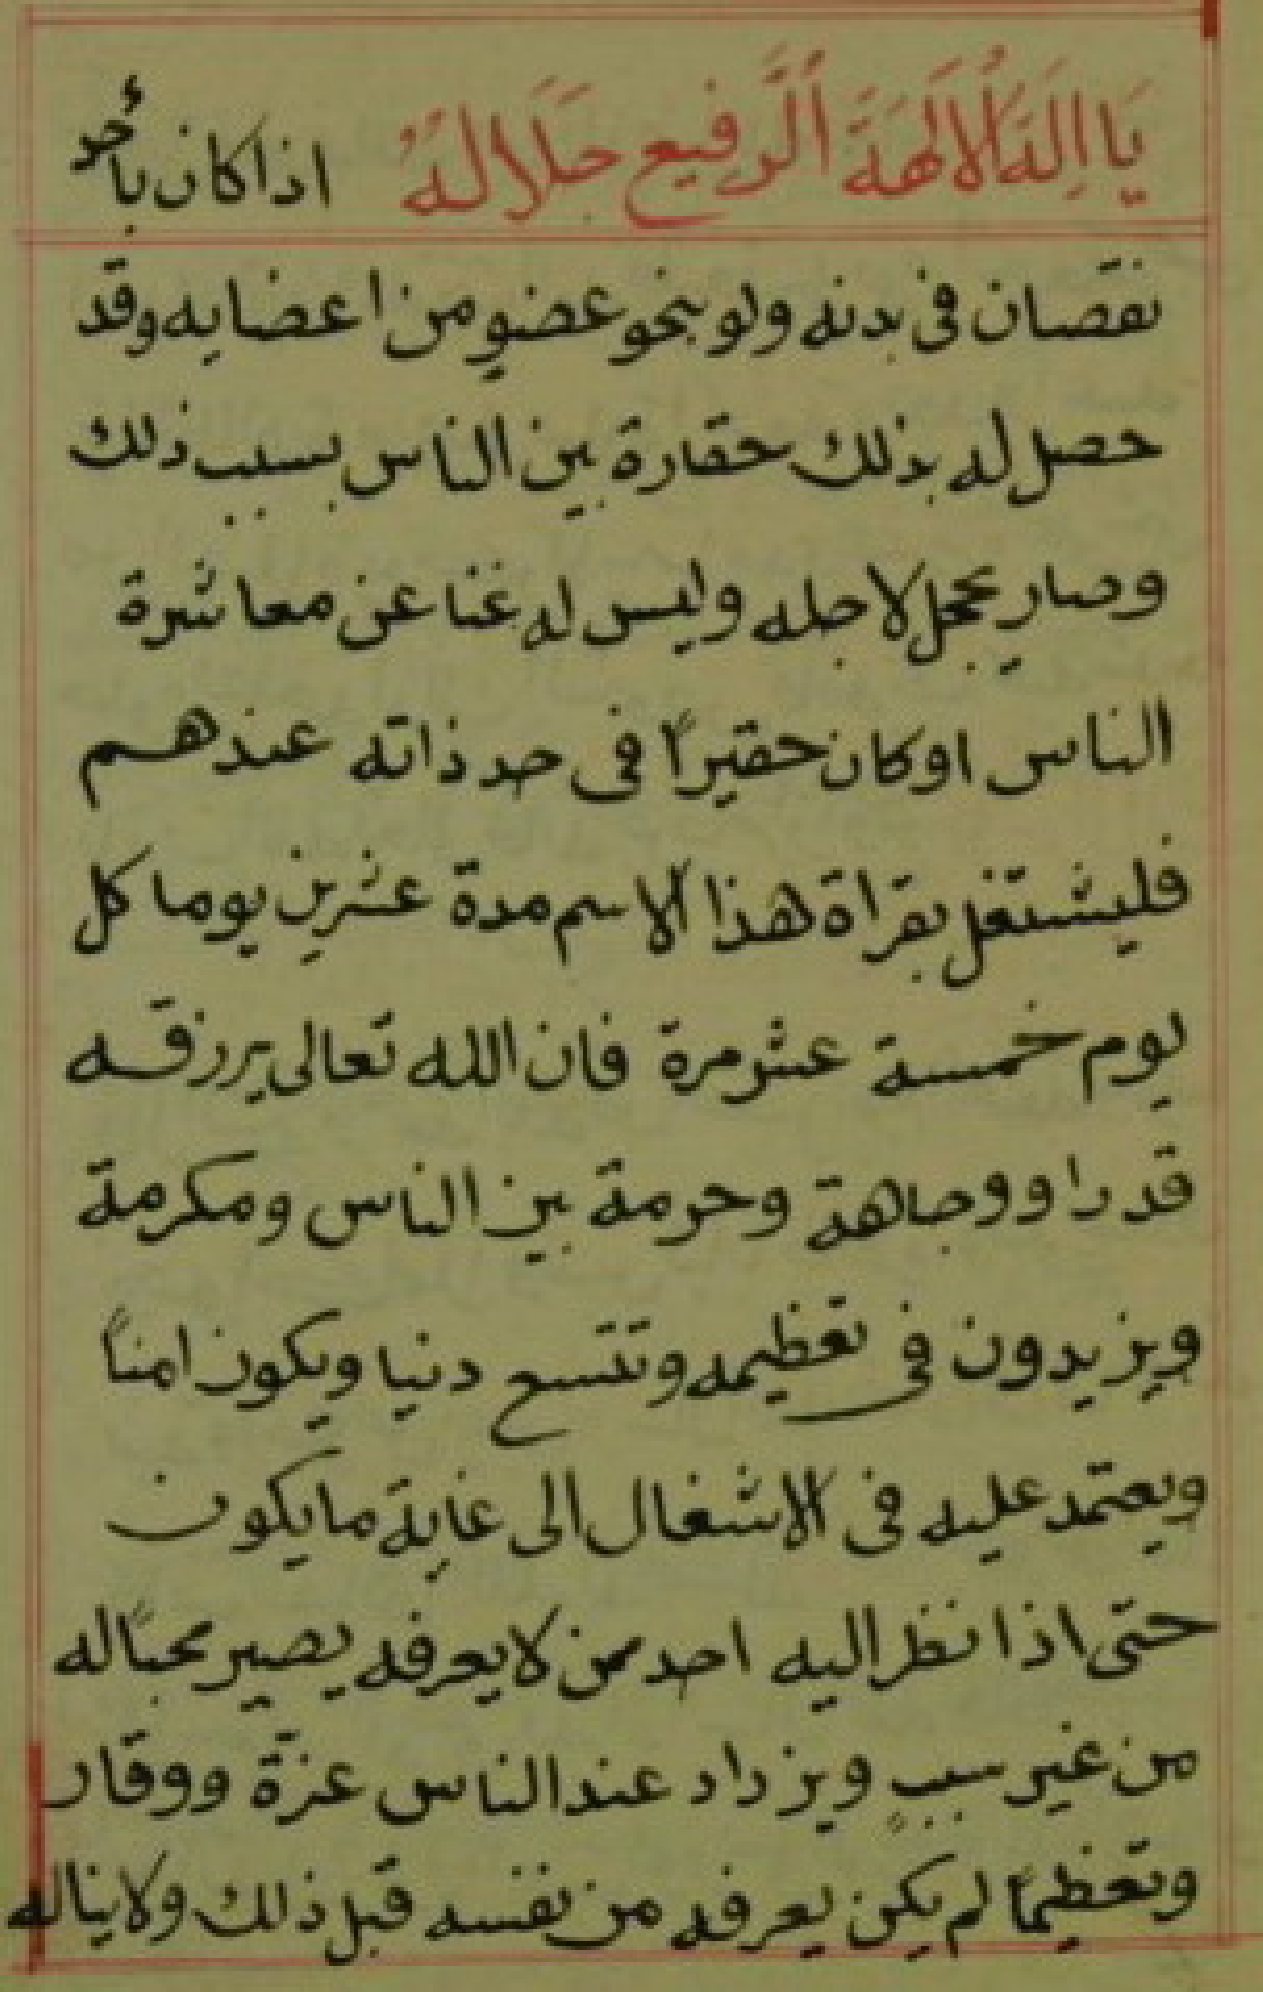 يَا اِلَهَ الْالِهَةَ اَلرَّفِيعِ جَلَالَهُ اذا كان بأحد
نقصان فى بدنه ولو بنحو عضوٍ من اعضايه وقد
حصل له بذلك حقارة بين الناس بسبب ذلك
وصار يخجل لاجله وليس له غنا عن معاشرة
الناس او كان حقيراً فى حد ذاته عندهم
فليشتغل بقراة هذا الاسم مدة عشرين يوما كل
يوم خمسة عشر مرة فان الله تعالى يرزقه
قدرا ووجاهة وحرمة بين الناس ومكرمة
ويزيدون فى تعظيمه وتتسع دنيا ويكون امناً
ويعتمد عليه فى الاشغال الى غاية ما يكون
حتى اذا نظر اليه احد من لا يعرفه يصير محباً له
من غير سببٍ ويزداد عند الناس عزّة ووقار
وتعظيماً لم يكن يعرفه من نفسه قبل ذلك ولا يناله